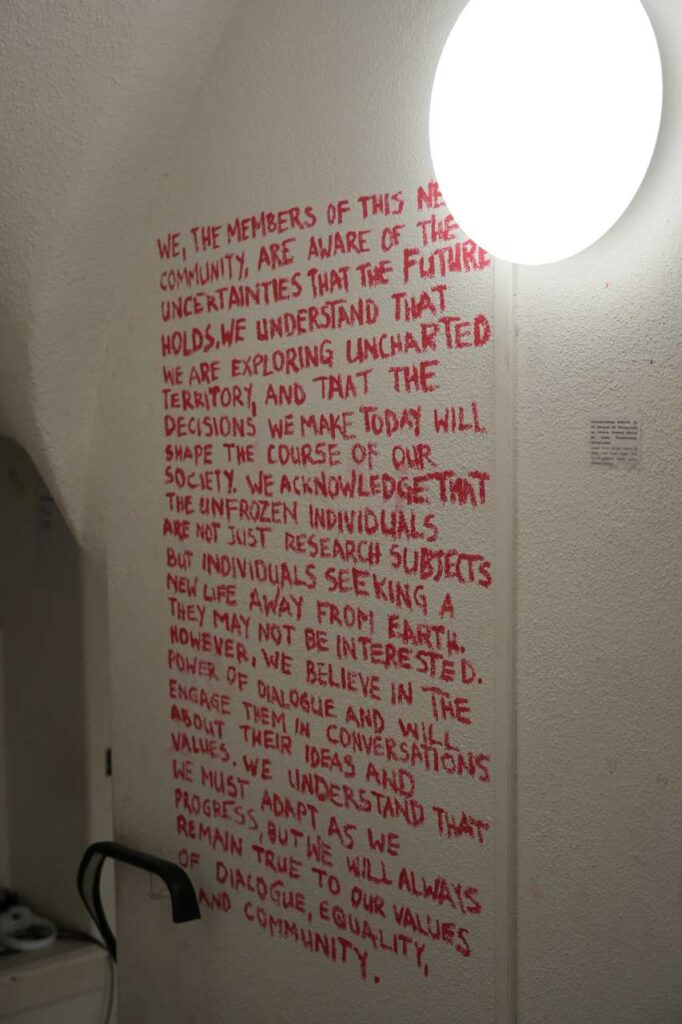 WE, THE MEMBERS OF THIS
COMMUNITY, ARE AWARE OF THE
UNCERTAINTIES THAT THE FUTURE
HOLDS. WE UNDERSTAND THAT
WE ARE EXPLORING UNCHARTED
TERRITORY, AND THAT THE
DECISIONS WE MAKE TODAY WILL
SHAPE THE COURSE OF OUR
SOCIETY. WE ACKNOWLEDGE THAT
THE UNFROZEN INDIVIDUALS
ARE NOT JUST RESEARCH SUBJECTS
BUT INDIVIDUALS SEEKING A
NEW LIFE AWAY FROM EARTH.
THEY MAY NOT BE INTERESTED.
HOWEVER, WE BELIEVE IN THE
POWER OF DIALOGUE AND WILL
ENGAGE THEM IN CONVERSATIONS
ABOUT THEIR IDEAS AND
VALUES. WE UNDERSTAND THAT
WE MUST ADAPT AS WE
PROGRESS, BUT WE WILL ALWAYS
REMAIN TRUE TO OUR VALUES
OF DIALOGUE, EQUALITY,
AND COMMUNITY.